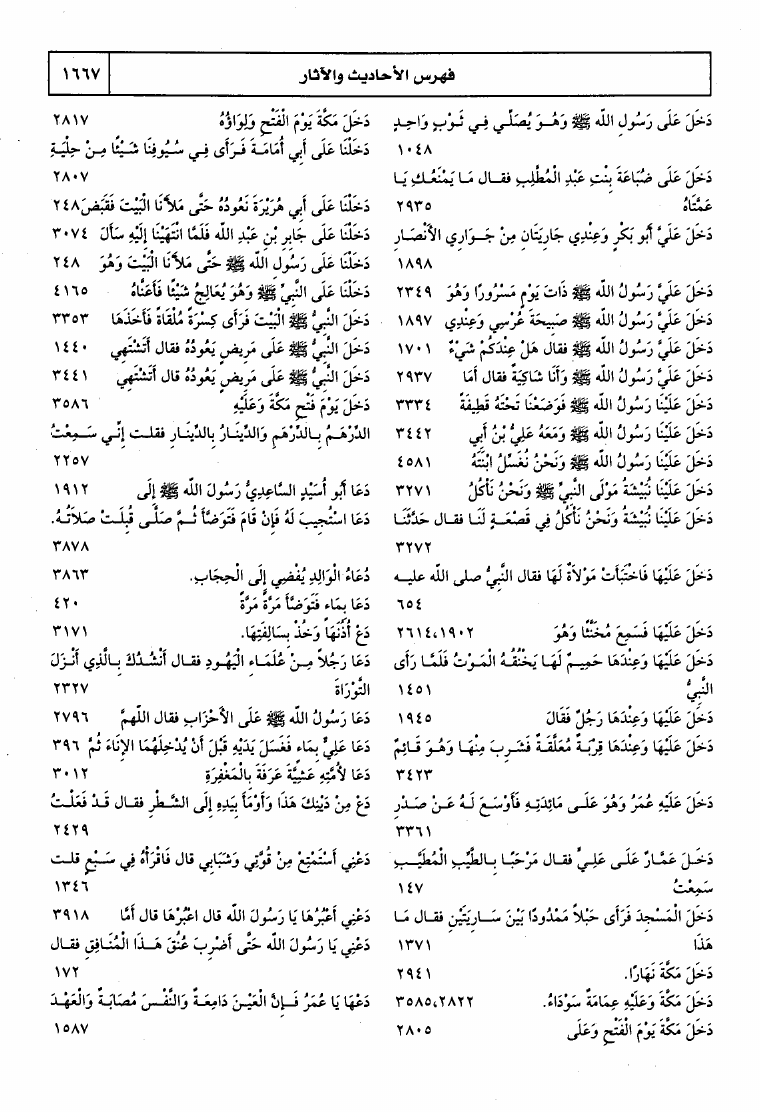 فهرس الأحاديث والآثار
١٦٦٧
دَخَلَ عَلَى رَسُولِ اللّه ﷺ وَهُـوَ يُصَلِّـي فِـي ثَـوْبٍ وَاحِـدٍ
١٠٤٨
دَخَلَ عَلَى ضُبَاعَةَ بِنْتِ عَبْدِ الْمُطَّلِبِ فقـال مَـا يَمْنَعُـكِ يَـا
عَمَّتَاهُ ٢٩٣٥
دَخَلَ عَلَيَّ أَبُو بَكْرٍ وَعِنْدِي جَارِيَتَانِ مِنْ جَـوَارِي الأَنْصَـارِ
١٨٩٨
دَخَلَ عَلَيَّ رَسُولُ اللّه ﷺ ذَاتَ يَوْمٍ مَسْرُورًا وَهُوَ ٢٣٤٩
دَخَلَ عَلَيَّ رَسُولُ اللّه ﷺ صَبِيحَةَ عُرْسِي وَعِنْدِي ١٨٩٧
دَخَلَ عَلَيَّ رَسُولُ اللّه ﷺ فقال هَلْ عِنْدَكُمْ شَيْءٌ ١٧٠١
دَخَلَ عَلَيَّ رَسُولُ اللّه ﷺ وَأَنَا شَاكِيَةٌ فقال أَمَا ٢٩٣٧
دَخَلَ عَلَيْنَا رَسُولُ اللّه ﷺ فَوَضَعْنَا تَحْتَهُ قَطِيفَةً ٣٣٣٤
دَخَلَ عَلَيْنَا رَسُولُ اللّه ﷺ وَمَعَهُ عَلِيُّ بْنُ أَبِي ٣٤٤٢
دَخَلَ عَلَيْنَا رَسُولُ اللّه ﷺ وَنَحْنُ نُغَسِّلُ ابْنَتَهُ ٤٥٨١
دَخَلَ عَلَيْنَا نُبَيْشَةُ مَوْلَى النَّبِيِّ ﷺ وَنَحْنُ نَأْكُلُ ٣٢٧١
دَخَلَ عَلَيْنَا نُبَيْشَةُ وَنَحْنُ نَأْكُلُ فِي قَصْعَـةٍ لَنَـا فقـال حَدَّثَنَـا
٣٢٧٢
دَخَلَ عَلَيْهَا فَاخْتَبَأَتْ مَوْلاَةٌ لَهَا فقال النَّبِيُّ صلى اللّه عليـه
٦٥٤
دَخَلَ عَلَيْهَا فَسَمِعَ مُخَنَّثًا وَهُوَ ٢٦١٤،١٩٠٢
دَخَلَ عَلَيْهَا وَعِنْدَهَا حَمِيـمٌ لَهَـا يَخْنُقُـهُ الْمَـوْتُ فَلَمَّـا رَأَى
النَّبِيُّ ١٤٥١
دَخَلَ عَلَيْهَا وَعِنْدَهَا رَجُلٌ فَقَالَ ١٩٤٥
دَخَلَ عَلَيْهَا وَعِنْدَهَا قِرْبَةٌ مُعَلَّقَةٌ فَشَرِبَ مِنْهَـا وَهُـوَ قَـائِمٌ
٣٤٢٣
دَخَلَ عَلَيْهِ عُمَرُ وَهُوَ عَلَـى مَائِدَتِـهِ فَأَوْسَـعَ لَـهُ عَـنْ صَـدْرِ
٣٣٦١
دَخَـلَ عَمَّـارٌ عَلَـى عَلِـيٍّ فقـال مَرْحَبًـا بِـالطَّيِّبِ الْمُطَيَّـبِ
سَمِعْتُ ١٤٧
دَخَلَ الْمَسْجِدَ فَرَأَى حَبْلاً مَمْدُودًا بَيْنَ سَـارِيَتَيْنِ فقـال مَـا
هَذَا ١٣٧١
دَخَلَ مَكَّةَ نَهَارًا. ٢٩٤١
دَخَلَ مَكَّةَ وَعَلَيْهِ عِمَامَةٌ سَوْدَاءُ. ٣٥٨٥،٢٨٢٢
دَخَلَ مَكَّةَ يَوْمَ الْفَتْحِ وَعَلَى ٢٨٠٥
دَخَلَ مَكَّةَ يَوْمَ الْفَتْحِ وَلِوَاؤُهُ ٢٨١٧
دَخَلْنَا عَلَى أَبِي أُمَامَـةَ فَـرَأَى فِـي سُـيُوفِنَا شَـيْئًا مِـنْ حِلْيَـةِ
٢٨٠٧
دَخَلْنَا عَلَى أَبِي هُرَيْرَةَ نَعُودُهُ حَتَّى مَلأْنَا الْبَيْتَ فَقَبَضَ ٢٤٨
دَخَلْنَا عَلَى جَابِرِ بْنِ عَبْدِ اللّه فَلَمَّا انْتَهَيْنَا إِلَيْهِ سَأَلَ ٣٠٧٤
دَخَلْنَا عَلَى رَسُولِ اللّه ﷺ حَتَّى مَلأْنَا الْبَيْتَ وَهُوَ ٢٤٨
دَخَلْنَا عَلَى النَّبِيِّ ﷺ وَهُوَ يُعَالِجُ شَيْئًا فَأَعَنَّاهُ ٤١٦٥
دَخَلَ النَّبِيُّ ﷺ الْبَيْتَ فَرَأَى كِسْرَةً مُلْقَاةً فَأَخَذَهَا ٣٣٥٣
دَخَلَ النَّبِيُّ ﷺ عَلَى مَرِيضٍ يَعُودُهُ فقال أَتَشْتَهِي ١٤٤٠
دَخَلَ النَّبِيُّ ﷺ عَلَى مَرِيضٍ يَعُودُهُ قال أَتَشْتَهِي ٣٤٤١
دَخَلَ يَوْمَ فَتْحِ مَكَّةَ وَعَلَيْهِ ٣٥٨٦
الدِّرْهَـمُ بِـالدِّرْهَمِ وَالدِّينَـارُ بِالدِّينَـارِ فقلـت إِنِّـي سَـمِعْتُ
٢٢٥٧
دَعَا أَبُو أُسَيْدٍ السَّاعِدِيُّ رَسُولَ اللّه ﷺ إِلَى ١٩١٢
دَعَا اسْتُجِيبَ لَهُ فَإِنْ قَامَ فَتَوَضَّأَ ثُـمَّ صَلَّـى قُبِلَـتْ صَلاَتُـهُ.
٣٨٧٨
دُعَاءُ الْوَالِدِ يُفْضِي إِلَى الْحِجَابِ. ٣٨٦٣
دَعَا بِمَاءٍ فَتَوَضَّأَ مَرَّةً مَرَّةً ٤٢٠
دَعْ أُذُنَهَا وَخُذْ بِسَالِفَتِهَا. ٣١٧١
دَعَا رَجُلاً مِـنْ عُلَمَـاءِ الْيَهُـودِ فقـال أَنْشُـدُكَ بِـالَّذِي أَنْـزَلَ
التَّوْرَاةَ ٢٣٢٧
دَعَا رَسُولُ اللّه ﷺ عَلَى الأَحْزَابِ فقال اللهمَّ ٢٧٩٦
دَعَا عَلِيٌّ بِمَاءٍ فَغَسَلَ يَدَيْهِ قَبْلَ أَنْ يُدْخِلَهُمَا الإِنَاءَ ثُمَّ ٣٩٦
دَعَا لأُمَّتِهِ عَشِيَّةَ عَرَفَةَ بِالْمَغْفِرَةِ ٣٠١٢
دَعْ مِنْ دَيْنِكَ هَذَا وَأَوْمَأَ بِيَدِهِ إِلَى الشَّـطْرِ فقـال قَـدْ فَعَلْـتُ
٢٤٢٩
دَعْنِي أَسْتَمْتِعْ مِنْ قُوَّتِي وَشَبَابِي قال فَاقْرَأْهُ فِي سَـبْعٍ قلـت
١٣٤٦
دَعْنِي أَعْبُرُهَا يَا رَسُولَ اللّه قال اعْبُرْهَا قال أَمَّا ٣٩١٨
دَعْنِي يَا رَسُولَ اللّه حَتَّى أَضْرِبَ عُنُقَ هَـذَا الْمُنَـافِقِ فقـال
١٧٢
دَعْهَا يَا عُمَرُ فَـإِنَّ الْعَيْـنَ دَامِعَـةٌ وَالنَّفْـسَ مُصَابَـةٌ وَالْعَهْـدَ
١٥٨٧